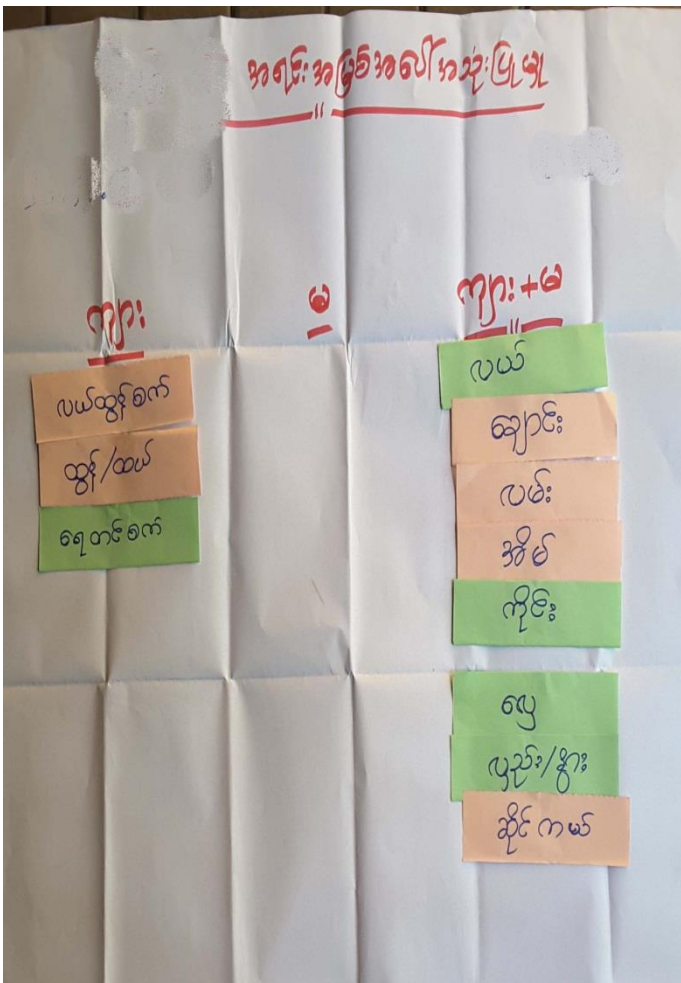 အရင်းအမြစ်အပေါ်အသုံးပြုမှု
ကျား
မ
ကျား+မ
လယ်ထွန်စက်
ထွန်/ထယ်
ရေတင်စက်
လယ်
ချောင်း
လမ်း
အိမ်
ကိုင်း
လှေ
လှည်း/နွား
ဆိုင်ကယ်